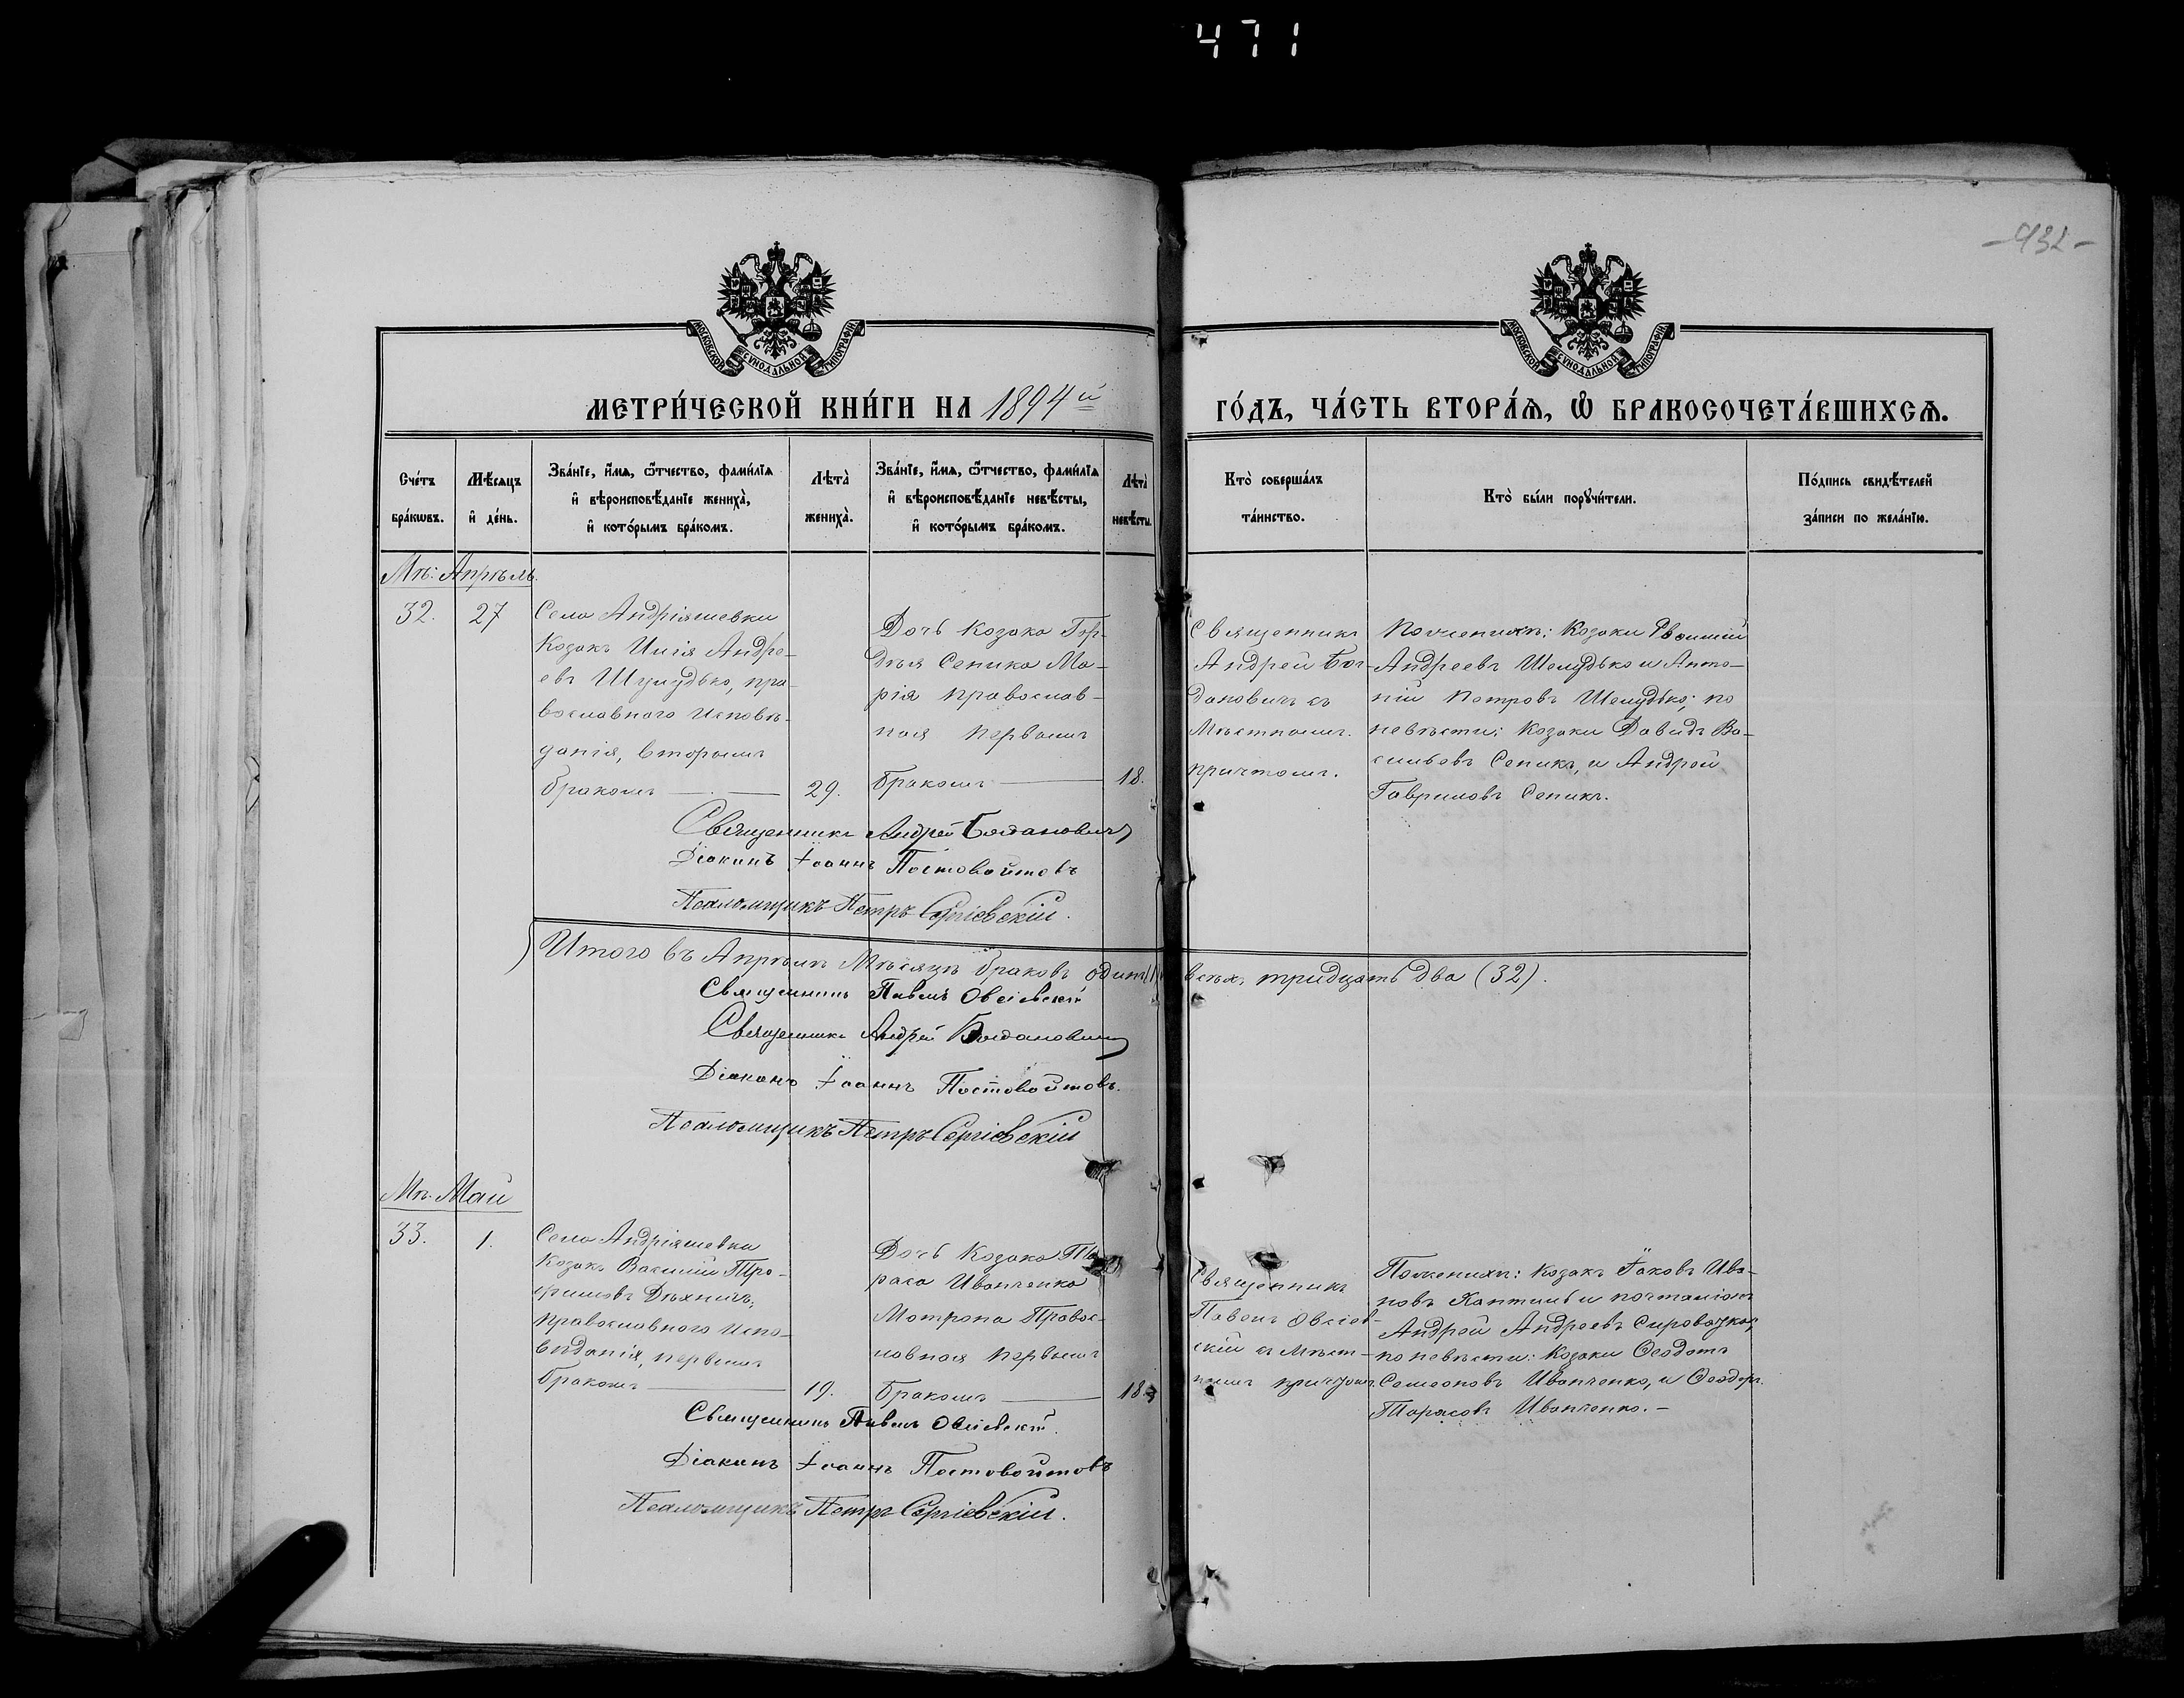 471
432
МОСКОВСКОЙ СѴНОДАЛЬНОЙ ТИПОГРАФІИ
МОСКОВСКОЙ СѴНОДАЛЬНОЙ ТИПОГРАФІИ
МЕТРИ́ЧЕСКОЙ КНИ́ГИ НА 1894й
ГО́ДЪ, ЧА́СТЬ ВТОРА́Ѧ, Ѡ БРАКОСОЧЕТА́ВШИХСѦ.
Сче́тъ
бра́кѡвъ.
Мѣ́сѧцъ
и҆ де́нь.
Зва́нїе, и҆́мѧ, ѻ҆́тчество, фами́лїѧ
и҆ вѣроисповѣ́данїе жениха̀,
и҆ кото́рымъ бра́комъ.
Лѣта̀
жениха̀.
Зва́нїе, и҆́мѧ, ѻ҆́тчество, фами́лїѧ
и҆ вѣроисповѣ́данїе невѣ́сты,
и҆ кото́рымъ бра́комъ.
Лѣта̀
невѣ́сты.
Кто̀ соверша́лъ
та́инство.
Кто̀ бы́ли порꙋчи́тели.
По́дпись свидѣ́телей
за́писи по жела́нїю.
Мъ: Апрѣль.
32.
27
Села Андріяшевки
Козакъ Илія Андре-
евъ Шулудько, пра-
вославнаго исповѣ-
данія, вторымъ
бракомъ
29.
Дочь Козака Гор-
дѣя Сепика Ма-
рія православ-
ная первымъ
бракомъ
18.
Священникъ
Андрей Бог-
дановичъ съ
Мѣстнымъ
причтомъ.
По женихѣ: Козаки
Андреевъ Шелудько и Анто-
ній Петровъ Шелудько; по
невѣсти: Козаки Давидъ Ва-
сильевъ Сепикъ, и Андрей
Гавриловъ Сепикъ.
Священникъ Андрей Богдановичъ
Діаконъ Іоаннъ Постовойтовъ
Псаломщикъ Петръ Сергіевскій.
Итого въ Апрѣлѣ Мѣсяцѣ браковъ одинъ всѣхъ тридцать два (32).
Священникъ Павелъ Овсіевскій
Священникъ Андрей Богдановичъ
Діаконъ Іоаннъ Постовойтовъ.
Псаломщикъ Петръ Сергіевскій
Мъ. Май
33.
1.
Села Андріяшевки
Козакъ Василій Тро-
фимовъ Дѣхтяръ,
православнаго испо-
вѣданія, первымъ
бракомъ
19.
Дочь Козака Та-
раса Иванченка
Мотрона Правос-
лавная первымъ
бракомъ
18.
Священникъ
Павелъ Овсіев-
скій съ Мѣст-
нымъ причтомъ.
По женихѣ: Козакъ Іаковъ Ива-
новъ и почталіонъ
Андрей Андреевъ Сыроватко,
по невѣсти: Козаки Ѳеодотъ
Семеоновъ Иванченко, и Ѳеодоръ
Тарасовъ Иванченко.-
Священникъ Павелъ Овсіевскій.
Діаконъ Іоаннъ Постовойтовъ
Псаломщикъ Петръ Сергіевскій.